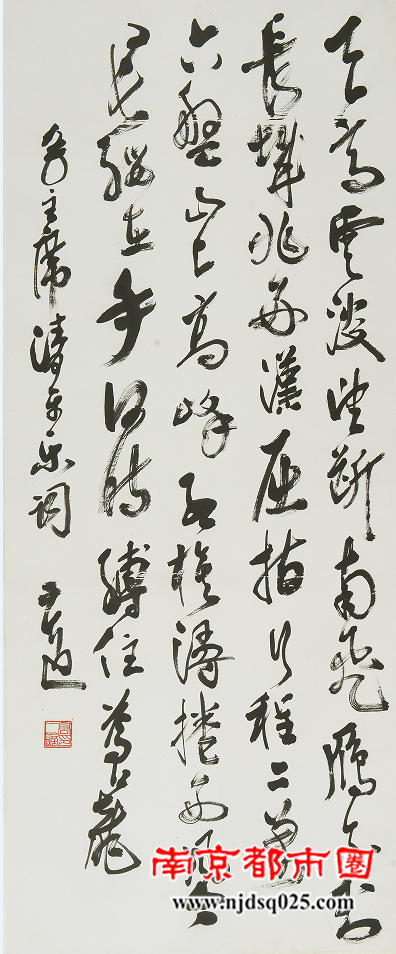 天高雲淡望断南飛雁不到
长城非好漢屈指行程二萬
六盤山上高峰红旗漫捲西風今
日長缨在手何时縛住蒼龍
毛主席清平乐词
南京都市圈
www.njdsq025.com